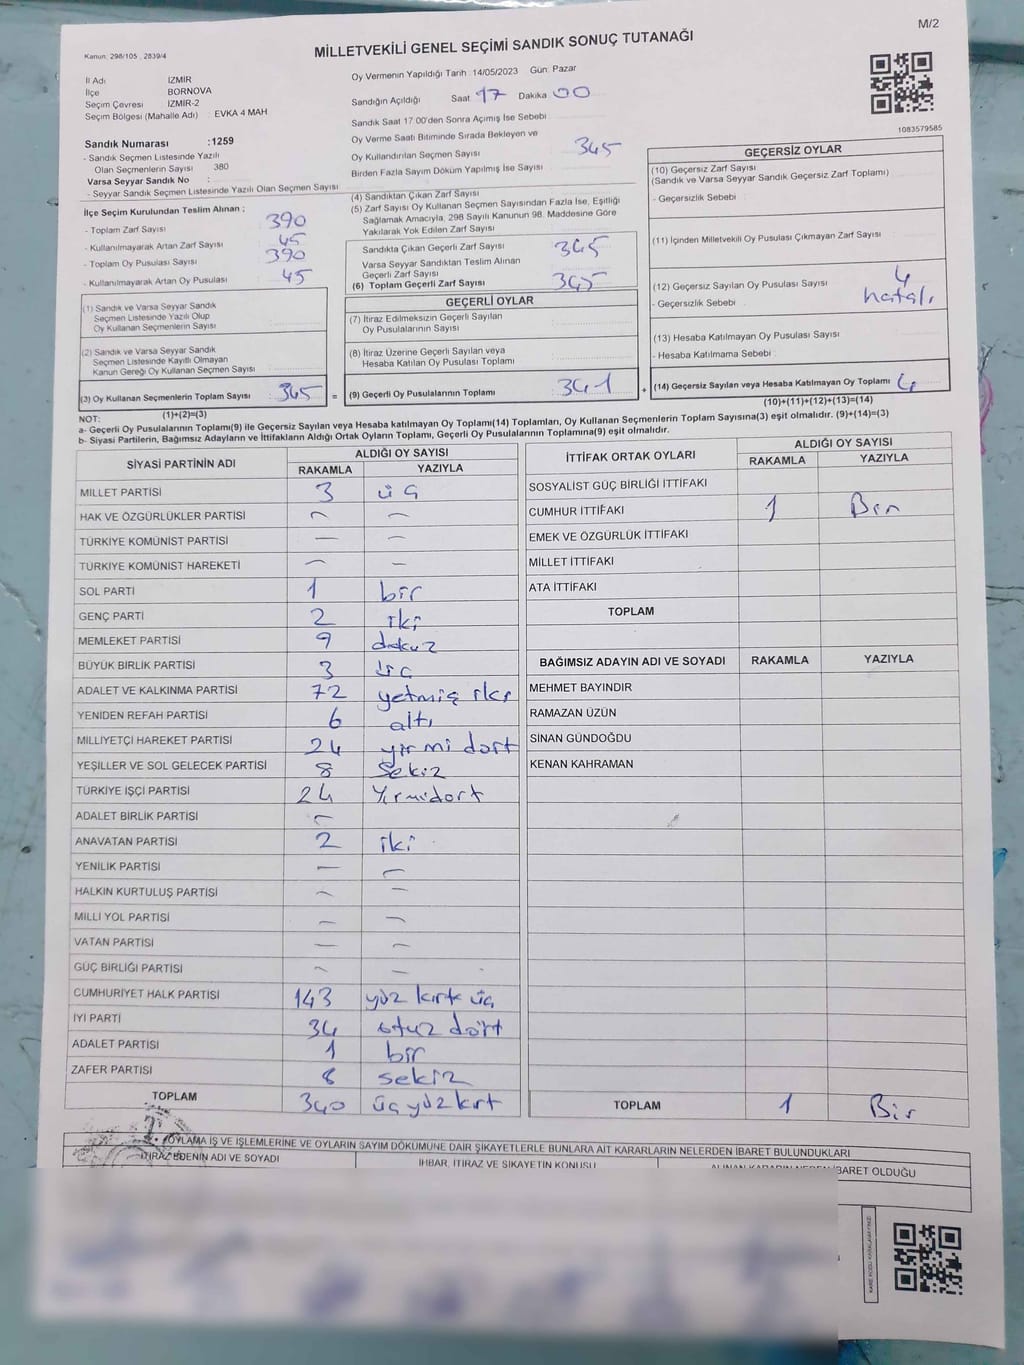 M/2
Kanun: 298/105 , 2839/4
MİLLETVEKİLİ GENEL SEÇİMİ SANDIK SONUÇ TUTANAĞI
İl Adı İZMİR
İlçe BORNOVA
Seçim Çevresi İZMİR-2
Seçim Bölgesi (Mahalle Adı) : EVKA 4 MAH
Sandık Numarası :1259
- Sandık Seçmen Listesinde Yazılı
Olan Seçmenlerin Sayısı : 380
Varsa Seyyar Sandık No :
- Seyyar Sandık Seçmen Listesinde Yazılı Olan Seçmen Sayısı :
İlçe Seçim Kurulundan Teslim Alınan ;
- Toplam Zarf Sayısı : 390
- Kullanılmayarak Artan Zarf Sayısı : 45
- Toplam Oy Pusulası Sayısı : 390
- Kullanılmayarak Artan Oy Pusulası : 45
(1) Sandık ve Varsa Seyyar Sandık
Seçmen Listesinde Yazılı Olup
Oy Kullanan Seçmenlerin Sayısı
(2) Sandık ve Varsa Seyyar Sandık
Seçmen Listesinde Kayıtlı Olmayan
Kanun Gereği Oy Kullanan Seçmen Sayısı
(3) Oy Kullanan Seçmenlerin Toplam Sayısı : 345
(1)+(2)=(3)
Oy Vermenin Yapıldığı Tarih : 14/05/2023 Gün: Pazar
Sandığın Açıldığı Saat 17 Dakika 00
Sandık Saat 17:00'den Sonra Açımış İse Sebebi
Oy Verme Saati Bitiminde Sırada Bekleyen ve
Oy Kullandırılan Seçmen Sayısı : 345
Birden Fazla Sayım Döküm Yapılmış İse Sayısı
(4) Sandıktan Çıkan Zarf Sayısı
(5) Zarf Sayısı Oy Kullanan Seçmen Sayısından Fazla İse, Eşitliği
Sağlamak Amacıyla, 298 Sayılı Kanunun 98. Maddesine Göre
Yakılarak Yok Edilen Zarf Sayısı
Sandıkta Çıkan Geçerli Zarf Sayısı : 345
Varsa Seyyar Sandıktan Teslim Alınan
Geçerli Zarf Sayısı
(6) Toplam Geçerli Zarf Sayısı : 345
GEÇERLİ OYLAR
(7) İtiraz Edilmeksizin Geçerli Sayılan
Oy Pusulalarının Sayısı
(8) İtiraz Üzerine Geçerli Sayılan veya
Hesaba Katılan Oy Pusulası Toplamı
= (9) Geçerli Oy Pusulalarının Toplamı : 341 +
1083579585
GEÇERSİZ OYLAR
(10) Geçersiz Zarf Sayısı
(Sandık ve Varsa Seyyar Sandık Geçersiz Zarf Toplamı)
- Geçersizlik Sebebi :
(11) İçinden Milletvekili Oy Pusulası Çıkmayan Zarf Sayısı
(12) Geçersiz Sayılan Oy Pusulası Sayısı : 4
- Geçersizlik Sebebi : hatalı
(13) Hesaba Katılmayan Oy Pusulası Sayısı
- Hesaba Katılmama Sebebi :
(14) Geçersiz Sayılan veya Hesaba Katılmayan Oy Toplamı : 4
(10)+(11)+(12)+(13)=(14)
NOT:
a- Geçerli Oy Pusulalarının Toplamı(9) ile Geçersiz Sayılan veya Hesaba katılmayan Oy Toplamı(14) Toplamları, Oy Kullanan Seçmenlerin Toplam Sayısına(3) eşit olmalıdır. (9)+(14)=(3)
b- Siyasi Partilerin, Bağımsız Adayların ve İttifakların Aldığı Ortak Oyların Toplamı, Geçerli Oy Pusulalarının Toplamına(9) eşit olmalıdır.
SİYASİ PARTİNİN ADI ALDIĞI OY SAYISI
RAKAMLA YAZIYLA
MİLLET PARTİSİ 3 üç
HAK VE ÖZGÜRLÜKLER PARTİSİ — —
TÜRKİYE KOMÜNİST PARTİSİ — —
TÜRKİYE KOMÜNİST HAREKETİ — —
SOL PARTİ 1 bir
GENÇ PARTİ 2 iki
MEMLEKET PARTİSİ 9 dokuz
BÜYÜK BİRLİK PARTİSİ 3 üç
ADALET VE KALKINMA PARTİSİ 72 yetmiş iki
YENİDEN REFAH PARTİSİ 6 altı
MİLLİYETÇİ HAREKET PARTİSİ 24 yirmi dört
YEŞİLLER VE SOL GELECEK PARTİSİ 8 Sekiz
TÜRKİYE İŞÇİ PARTİSİ 24 Yirmidort
ADALET BİRLİK PARTİSİ —
ANAVATAN PARTİSİ 2 iki
YENİLİK PARTİSİ — —
HALKIN KURTULUŞ PARTİSİ — —
MİLLİ YOL PARTİSİ — —
VATAN PARTİSİ — —
GÜÇ BİRLİĞİ PARTİSİ — —
CUMHURİYET HALK PARTİSİ 143 yüz kırk üç
İYİ PARTİ 34 otuz dört
ADALET PARTİSİ 1 bir
ZAFER PARTİSİ 8 sekiz
TOPLAM 340 üç yüz kırt
İTTİFAK ORTAK OYLARI ALDIĞI OY SAYISI
RAKAMLA YAZIYLA
SOSYALİST GÜÇ BİRLİĞİ İTTİFAKI
CUMHUR İTTİFAKI 1 Bir
EMEK VE ÖZGÜRLÜK İTTİFAKI
MİLLET İTTİFAKI
ATA İTTİFAKI
TOPLAM
BAĞIMSIZ ADAYIN ADI VE SOYADI RAKAMLA YAZIYLA
MEHMET BAYINDIR
RAMAZAN ÜZÜN
SİNAN GÜNDOĞDU
KENAN KAHRAMAN
TOPLAM 1 Bir
OYLAMA İŞ VE İŞLEMLERİNE VE OYLARIN SAYIM DÖKÜMÜNE DAİR ŞİKAYETLERLE BUNLARA AİT KARARLARIN NELERDEN İBARET BULUNDUKLARI
İTİRAZ EDENİN ADI VE SOYADI İHBAR, İTİRAZ VE ŞİKAYETİN KONUSU ALINAN KARARIN NEDEN İBARET OLDUĞU